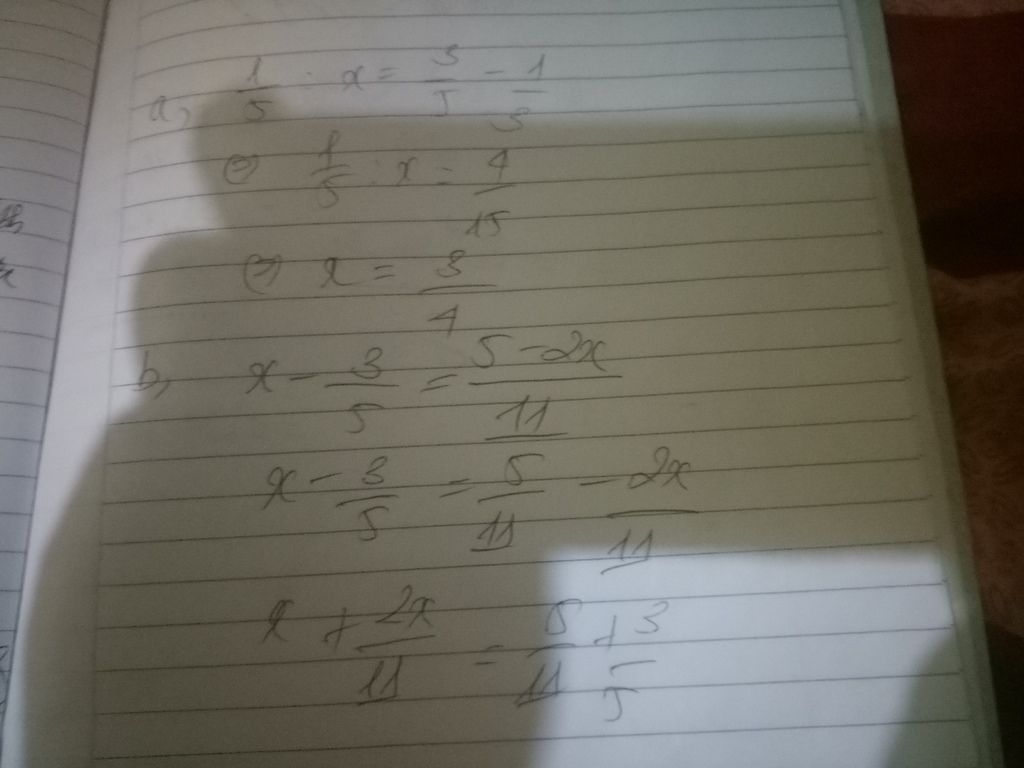 a, 1/5 : x = 3/5 - 1/3
⇔ 1/5 : x = 4/15
⇔ x = 3/4
b, x - 3/5 = (5 - 2x)/11
x - 3/5 = 5/11 - 2x/11
x + 2x/11 = 5/11 + 3/5